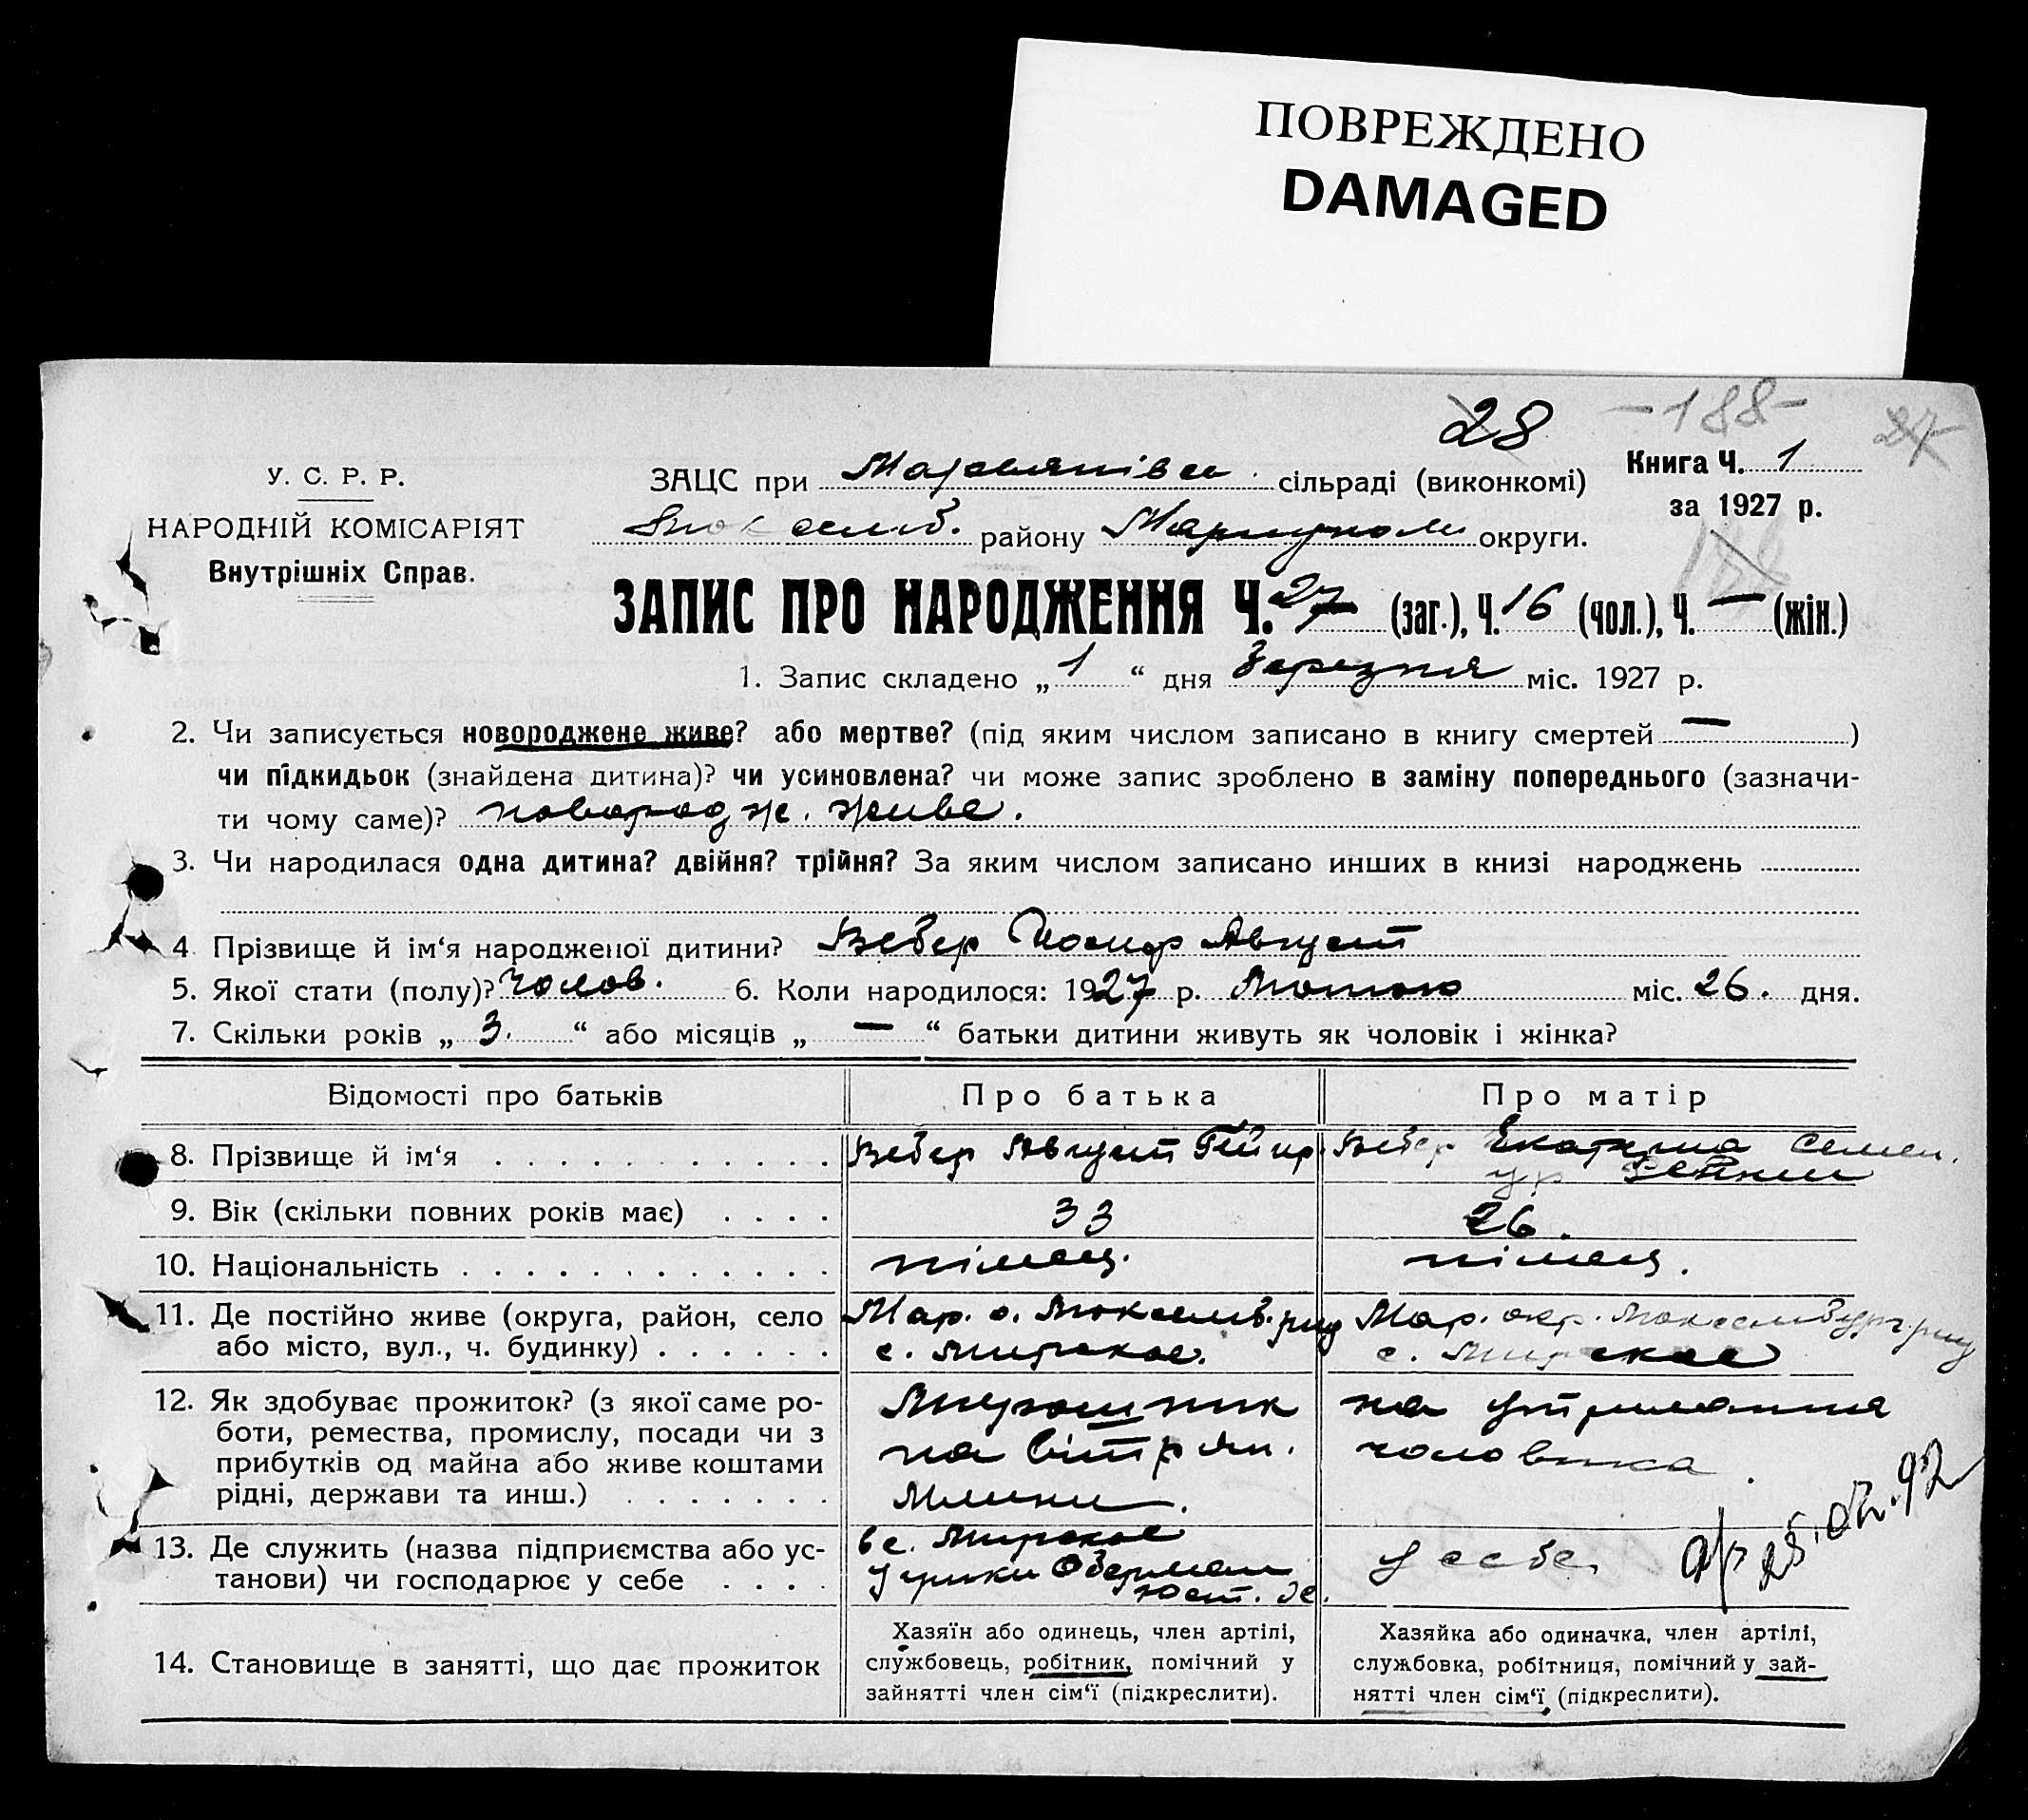 ПОВРЕЖДЕНО
DAMAGED
28 -188- 27
У. С. Р. Р.
НАРОДНІЙ КОМІСАРІЯТ
Внутрішніх Справ.
ЗАЦС при сільраді (виконкомі)
району Маріупольськ округи.
Книга Ч. 1
за 1927 р.
ЗАПИС ПРО НАРОДЖЕННЯ Ч. 27 (заг.), Ч. 16 (чол.), Ч. — (жін.)
1. Запис складено „ 1 “ дня Березня міс. 1927 р.
2. Чи записується новороджене живе? або мертве? (під яким числом записано в книгу смертей — )
чи підкидьок (знайдена дитина)? чи усиновлена? чи може запис зроблено в заміну попереднього (зазначи-
ти чому саме)? новородж. живе.
3. Чи народилася одна дитина? двійня? трійня? За яким числом записано инших в книзі народжень
4 Прізвище й ім‘я народженої дитини? Вебер Иосиф Август
5. Якої стати (полу)? Чолов. 6. Коли народилося: 1927 р. Лютого міс. 26. дня.
7. Скільки років „ 3. “ або місяців „ — “ батьки дитини живуть як чоловік і жінка?
Відомості про батьків
Про батька
Про матір
8. Прізвище й ім‘я
Вебер Август
Вебер Екатерина Семен.
ур
9. Вік (скільки повних років має)
33
26.
10. Національність
німец.
німец.
11. Де постійно живе (округа, район, село
або місто, вул., ч. будинку)
Мар. о. Люксемб. р-ну
с. Мирское.
Мар. окр. Люксембург. р-ну
с. Мирское
12. Як здобуває прожиток? (з якої саме ро-
боти, ремества, промислу, посади чи з
прибутків од майна або живе коштами
рідні, держави та инш.)
Мирошник
на вітрян.
млині.
на утриманні
чоловіка.
13. Де служить (назва підприємства або ус-
танови) чи господарює у себе
в с. Мирское
у
у себе.
25.02.92
14. Становище в занятті, що дає прожиток
Хазяїн або одинець, член артілі,
службовець, робітник, помічний у
зайнятті член сім‘ї (підкреслити).
Хазяйка або одиначка, член артілі,
службовка, робітниця, помічний у зай-
нятті член сім‘ї (підкреслити).